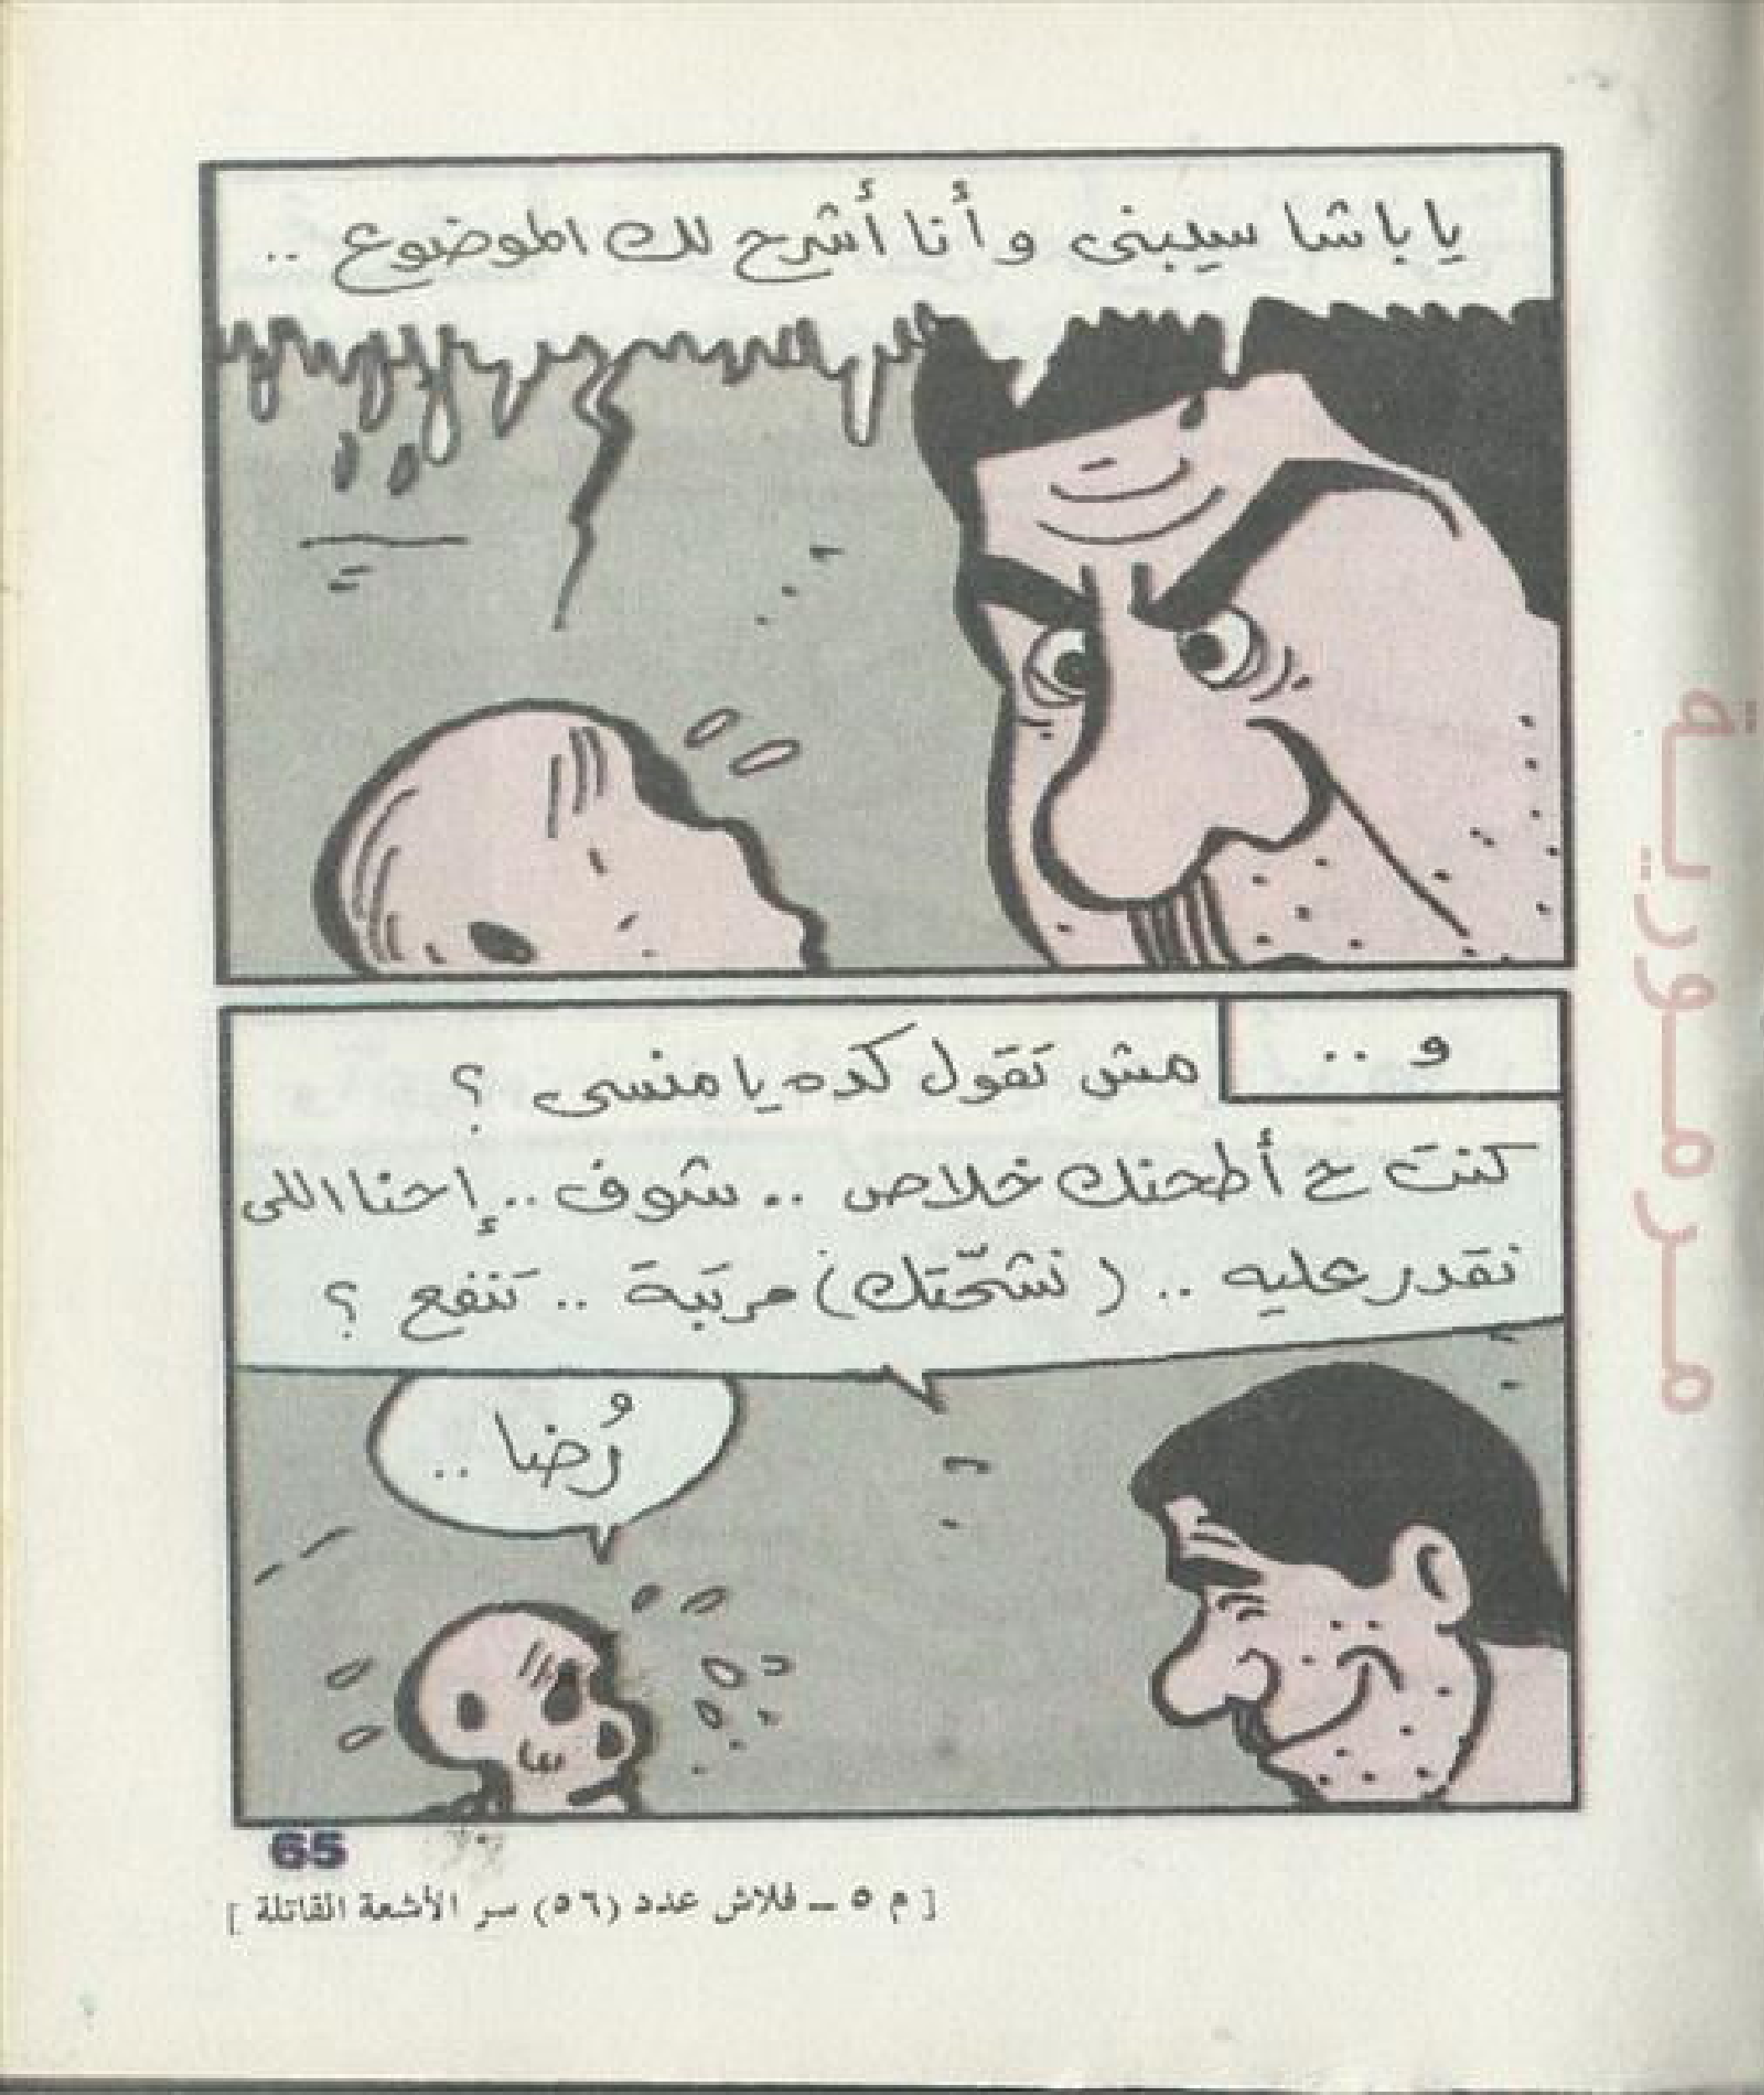 يا باشا سيبنى وأنا أشرح لك الموضوع ..
و ..
مش تقول كده يا منسى ؟
كنت ح أطحنك خلاص .. شوف .. إحنا اللى
نقدر عليه .. (نشحّتك) مرتبة .. تنفع ؟
رُضا ..
65
[ م ٥ ــ فلاش عدد (٥٦) سر الأشعة القاتلة ]
مرمورية